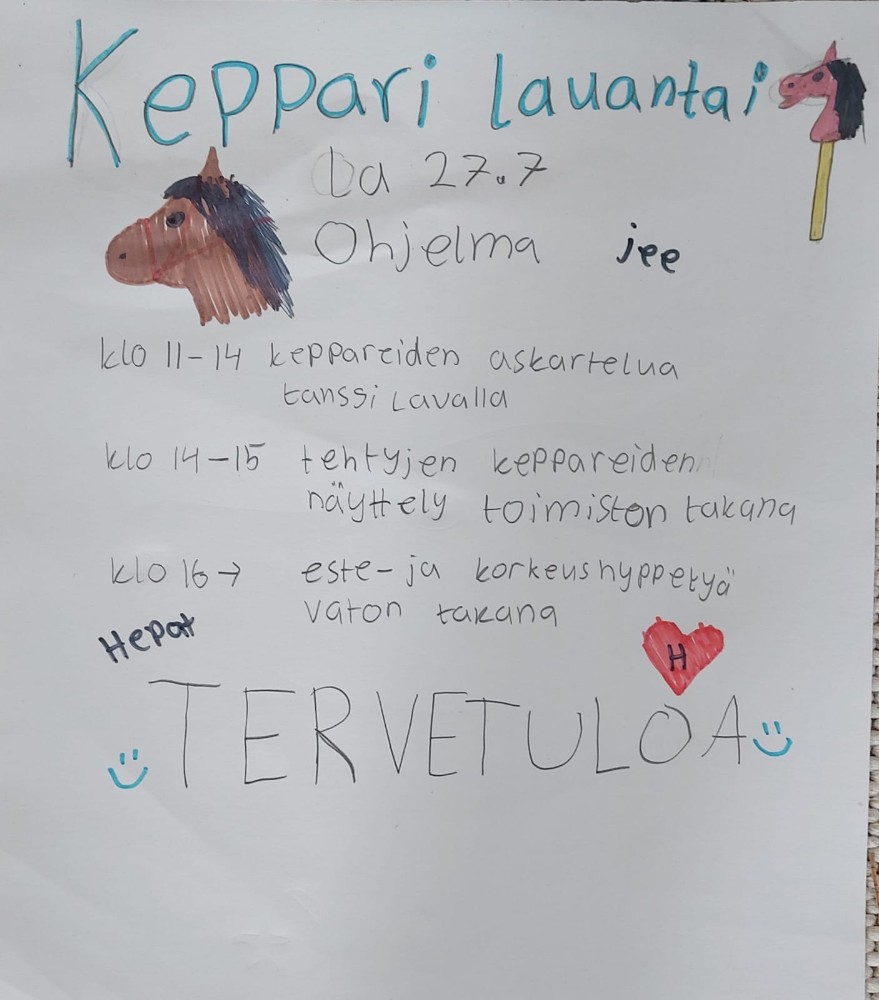 Keppari lauantai
La 27.7
Ohjelma jee
klo 11-14 keppareiden askartelua
tanssi Lavalla
klo 14-15 tehtyjen keppareiden
näyttely toimiston takana
klo 16→ este-ja korkeushyppetyä
vaton takana
Hepat
H
TERVETULOA